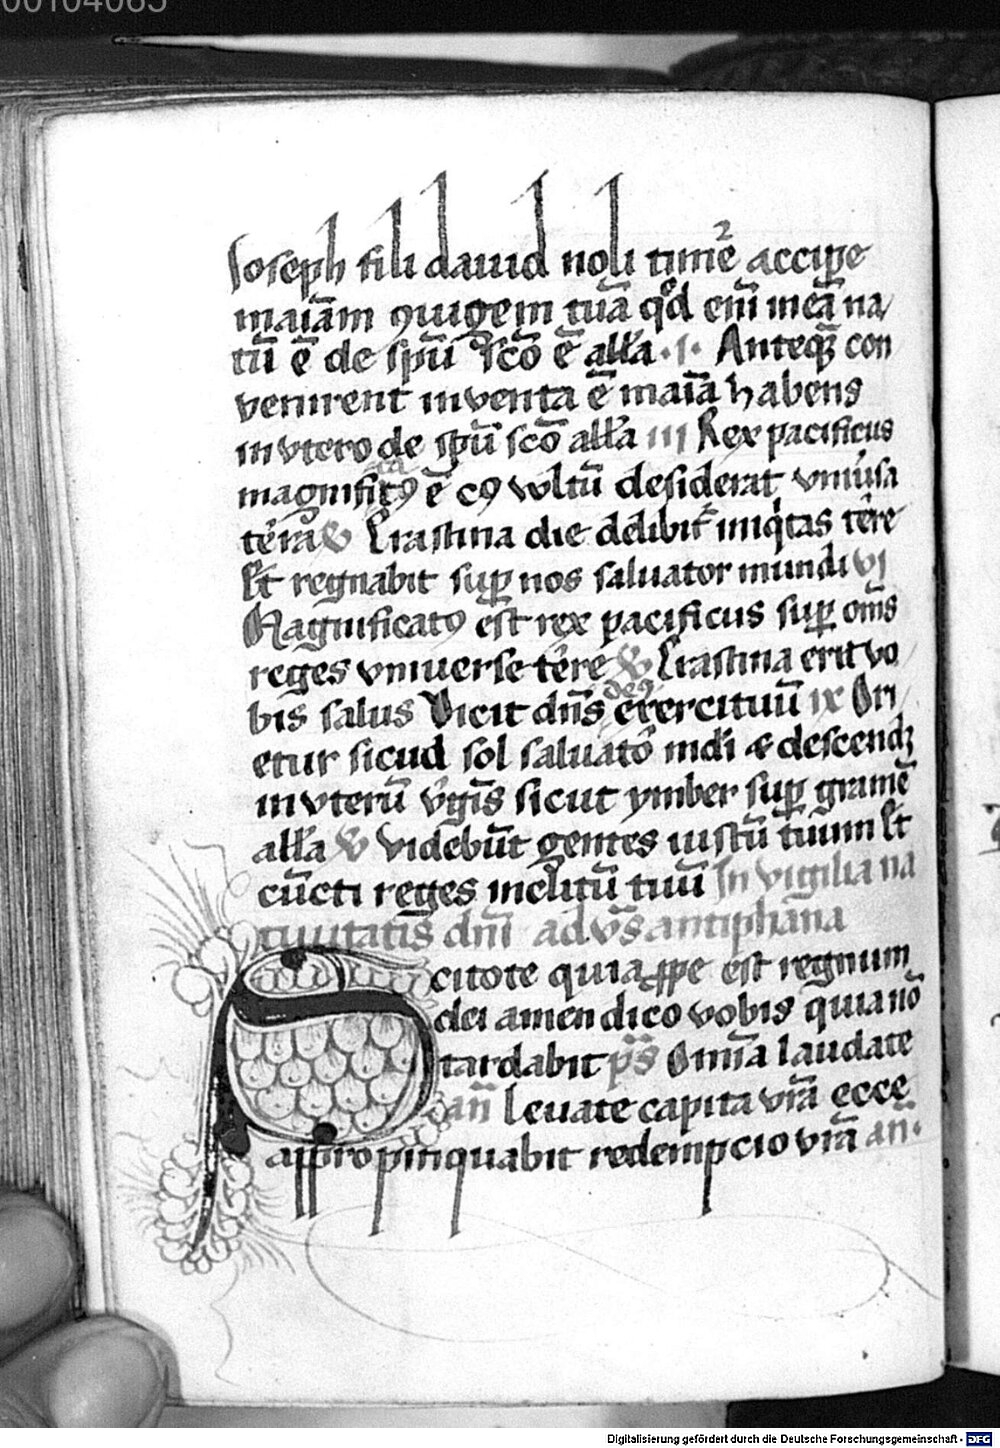 00104065
Joseph fili dauid noli timē accipe
maiām ꝯiugem tuā qd̄ em̄ in eā na
tū ē de spū scō ē alla · i · Anteq̄ con
venirent inventa ē maiā habens
in vtero de spū scō alla iii Rex pacificus
magnificatꝰ ē cꝰ wltū desiderat vniūsa
terra ꝟ Crastina die delibit̄ iniqͥtas terre
Et regnabit suꝑ nos saluator mundi vi
Magnificatꝰ est rex pacificus suꝑ om̄s
reges vniuerse terre ꝟ Crastina erit vo
bis salus Dicit dn̄s deꝰ exercituū ix Ori
etur sicud sol saluatō mdi & descendꝫ
in vterū v̄gīs sicut ymber suꝑ gramē
alla ꝟ Videbūt gentes iustū tuum Et
cūcti reges inclitū tuū In vigilia na
tiuitatis dn̄i ad vs̄ antiphana
Scitote quia ꝓpe est regnum
dei amen dico vobis quia nō
tardabit ps̄ Omīa laudate
an̄ Leuate capita vrā ecce
appropinquabit redempcio vrā an̄·
Digitalisierung gefördert durch die Deutsche Forschungsgemeinschaft - DFG